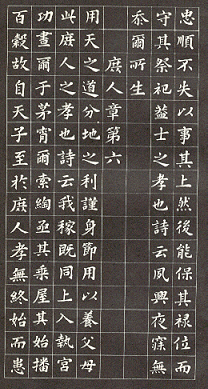 忠順不失以事其上然後能保其祿位而
守其祭祀葢士之孝也詩云夙興夜寐無
忝爾所生
庶人章第六
用天之道分地之利謹身節用以養父母
此庶人之孝也詩云我稼既同上入執宮
功晝爾于茅宵爾索綯亟其乘屋其始播
百穀故自天子至於庶人孝無終始而患